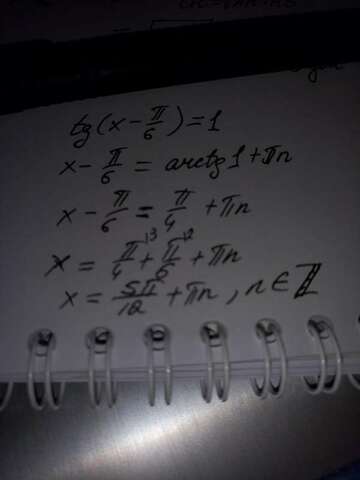 tg(x - π/6) = 1
x - π/6 = arctg 1 + πn
x - π/6 = π/4 + πn
x = π/4 |3 + π/6 |2 + πn
x = 5π/12 + πn, n ∈ ℤ